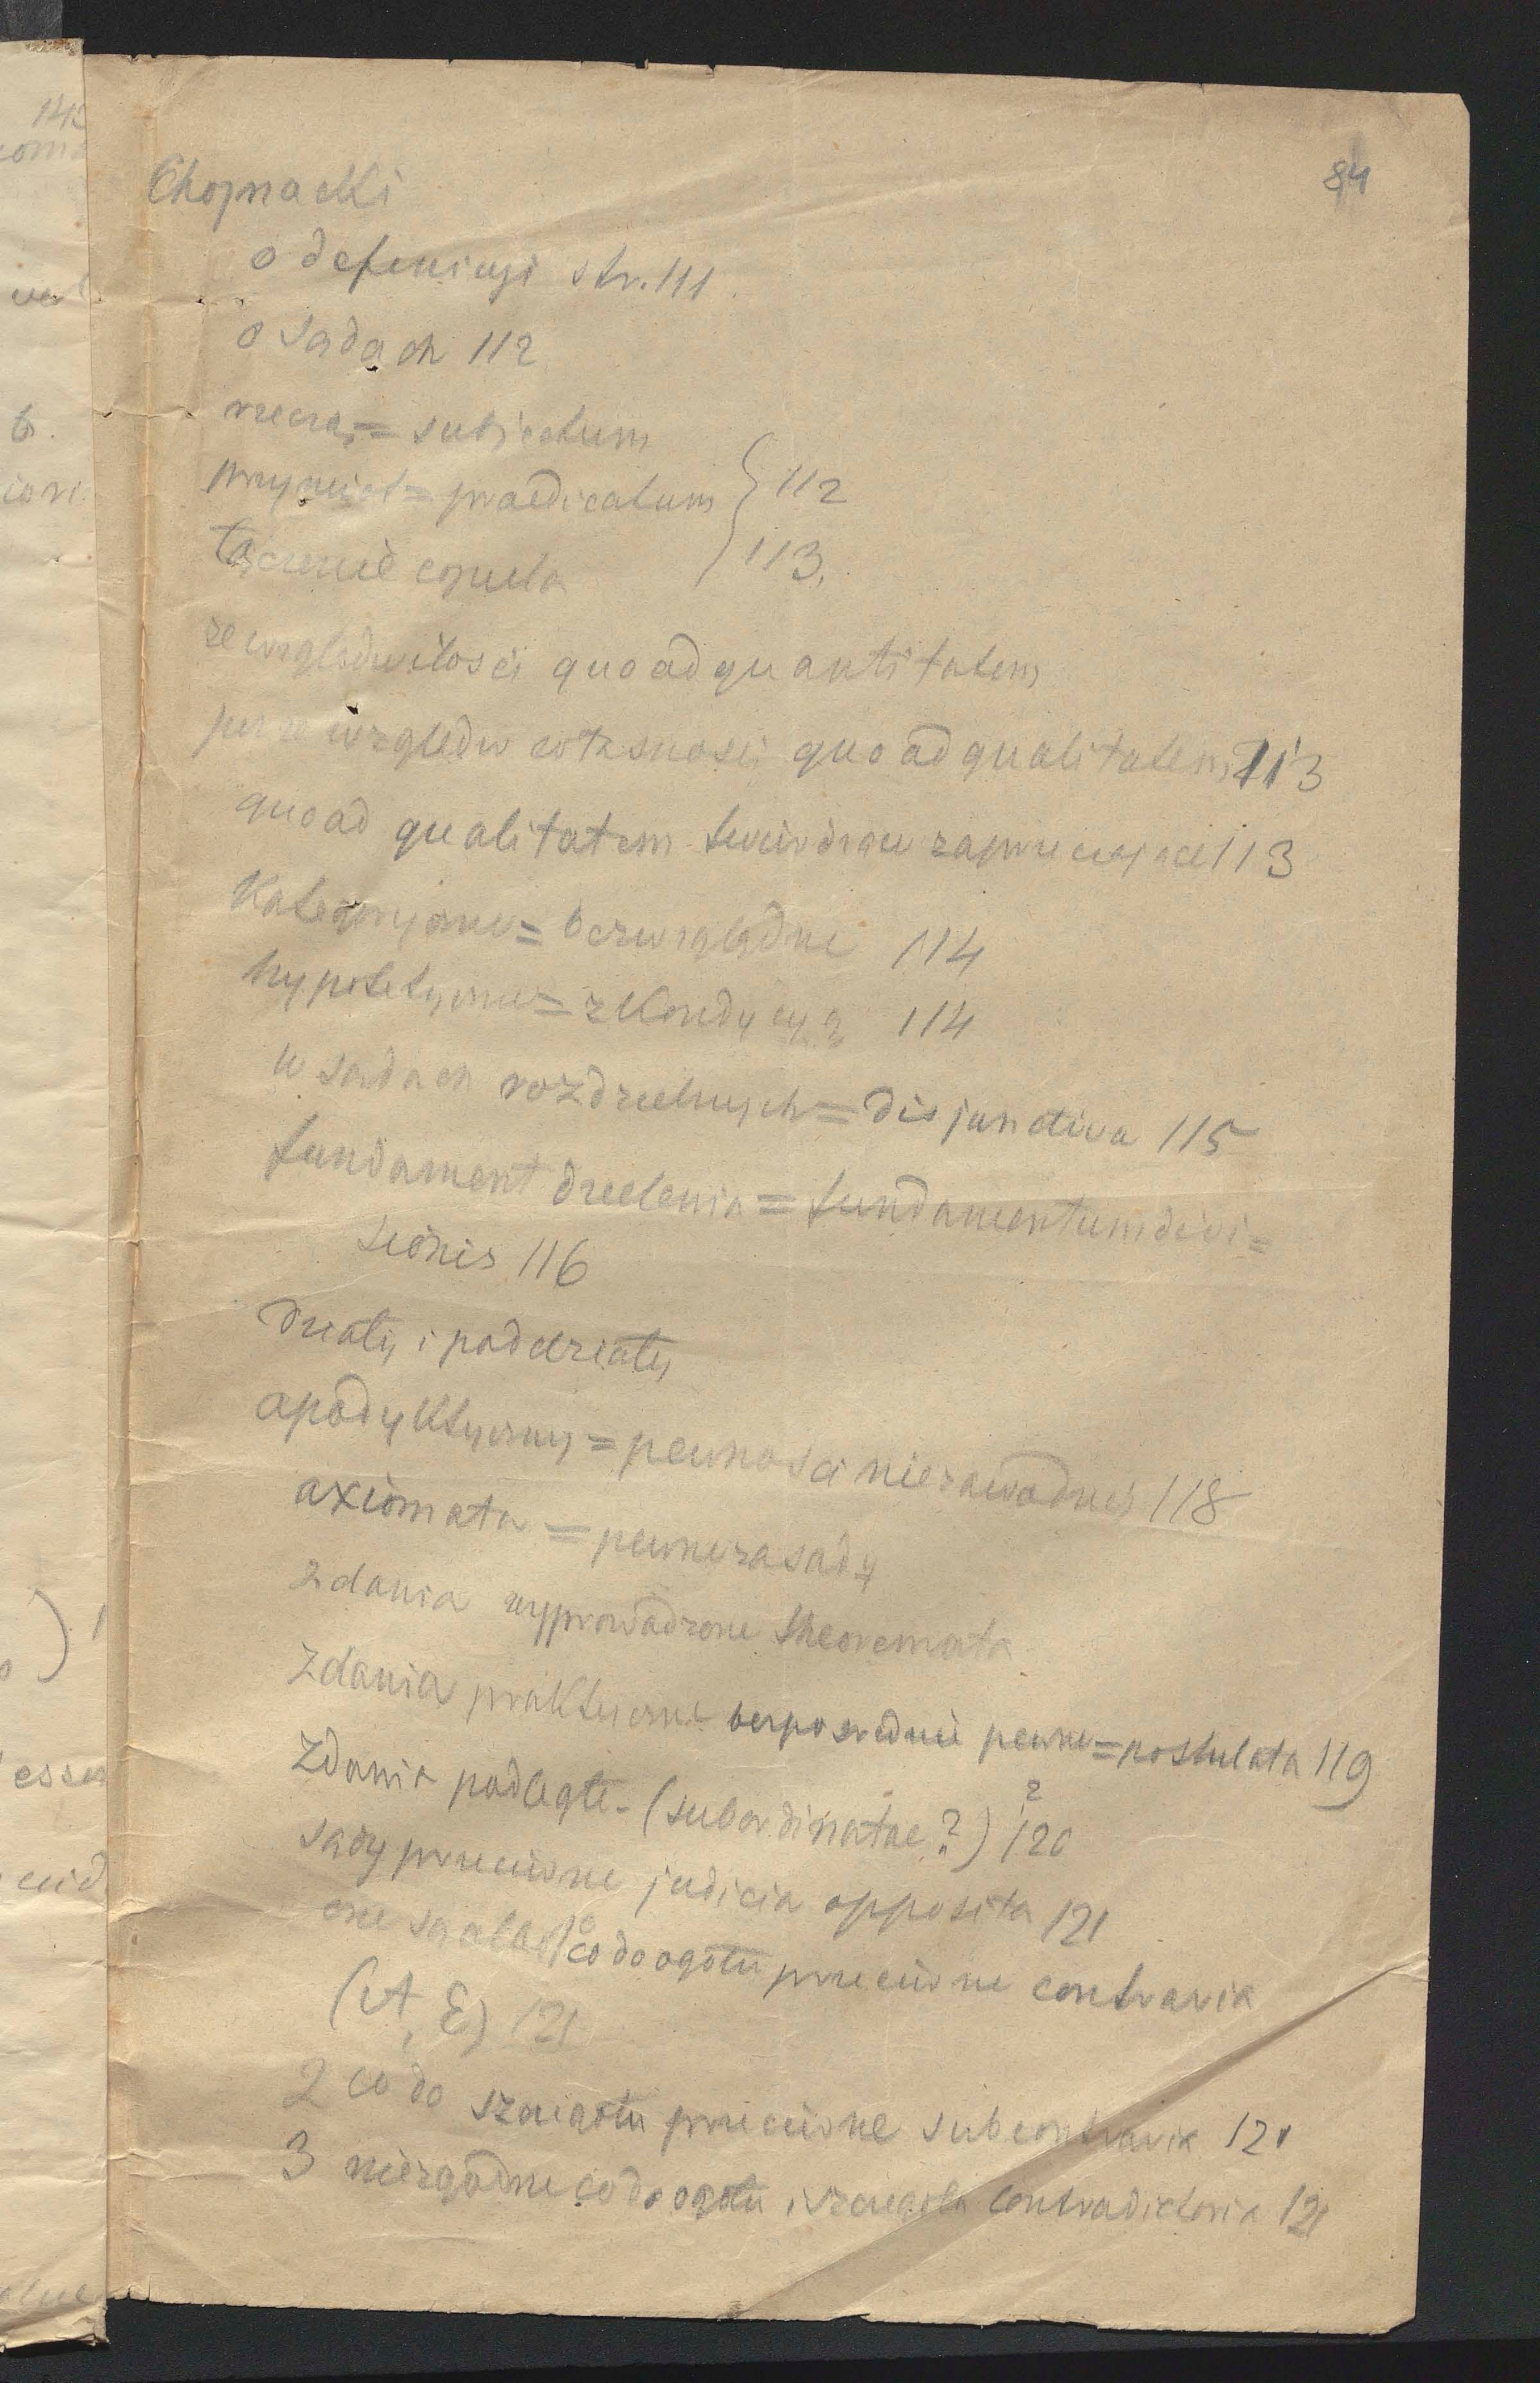 84
Chojnacki
o defenicyi str. 111.
o sądach 112
rzecz = subjectum
przymiot = praedicatum } 112
łączenie copula 113.
ze względu ilości quo ad quantitatem
ze względu własności quo ad qualitatem 113
quo ad qualitatem twierdzące zaprzeczające 113
Kategoryczne = bezwzględne 114
hypotetyczne = z Kondycyą 114
w sądach rozdzielnych = disjunctiva 115
fundament dzielenia = fundamentum divi=
sionis 116
działy i poddziały
apodyktyczny = pewności niezawodnej 118
axiomata = pewne zasady
zdania wyprowadzone theoremata
zdania praktyczne bezpośrednie pewne = postulata 119
zdania podległe - (subordinatae?) 120 ?
sądy przeciwne judicia opposita 121
one są albo 1º co do ogółu przeciwne contraria
(A, E) 121
2 co do szczegółu przeciwne subcontraria 121
3 niezgodne co do ogółu i szczegółu contradictoria 121